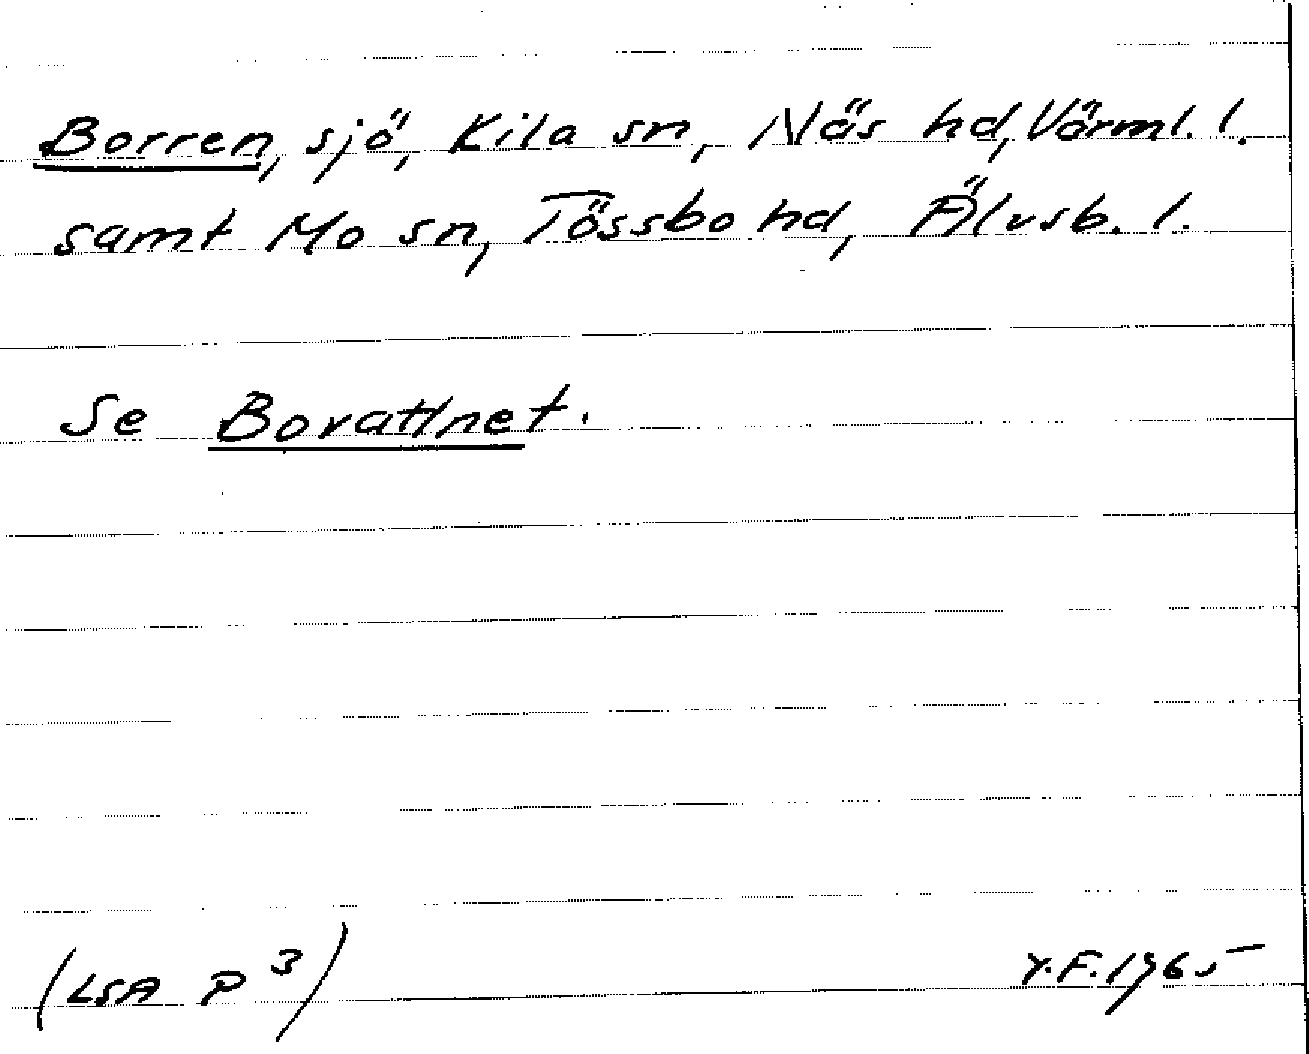 Borren, sjö, Kila sn, Näs hd, Värml. l.
samt Mo sn, Tössbo hd, Älvsb. l.
Se Borattnet.
(LSA P 3)
Y.F. 1965